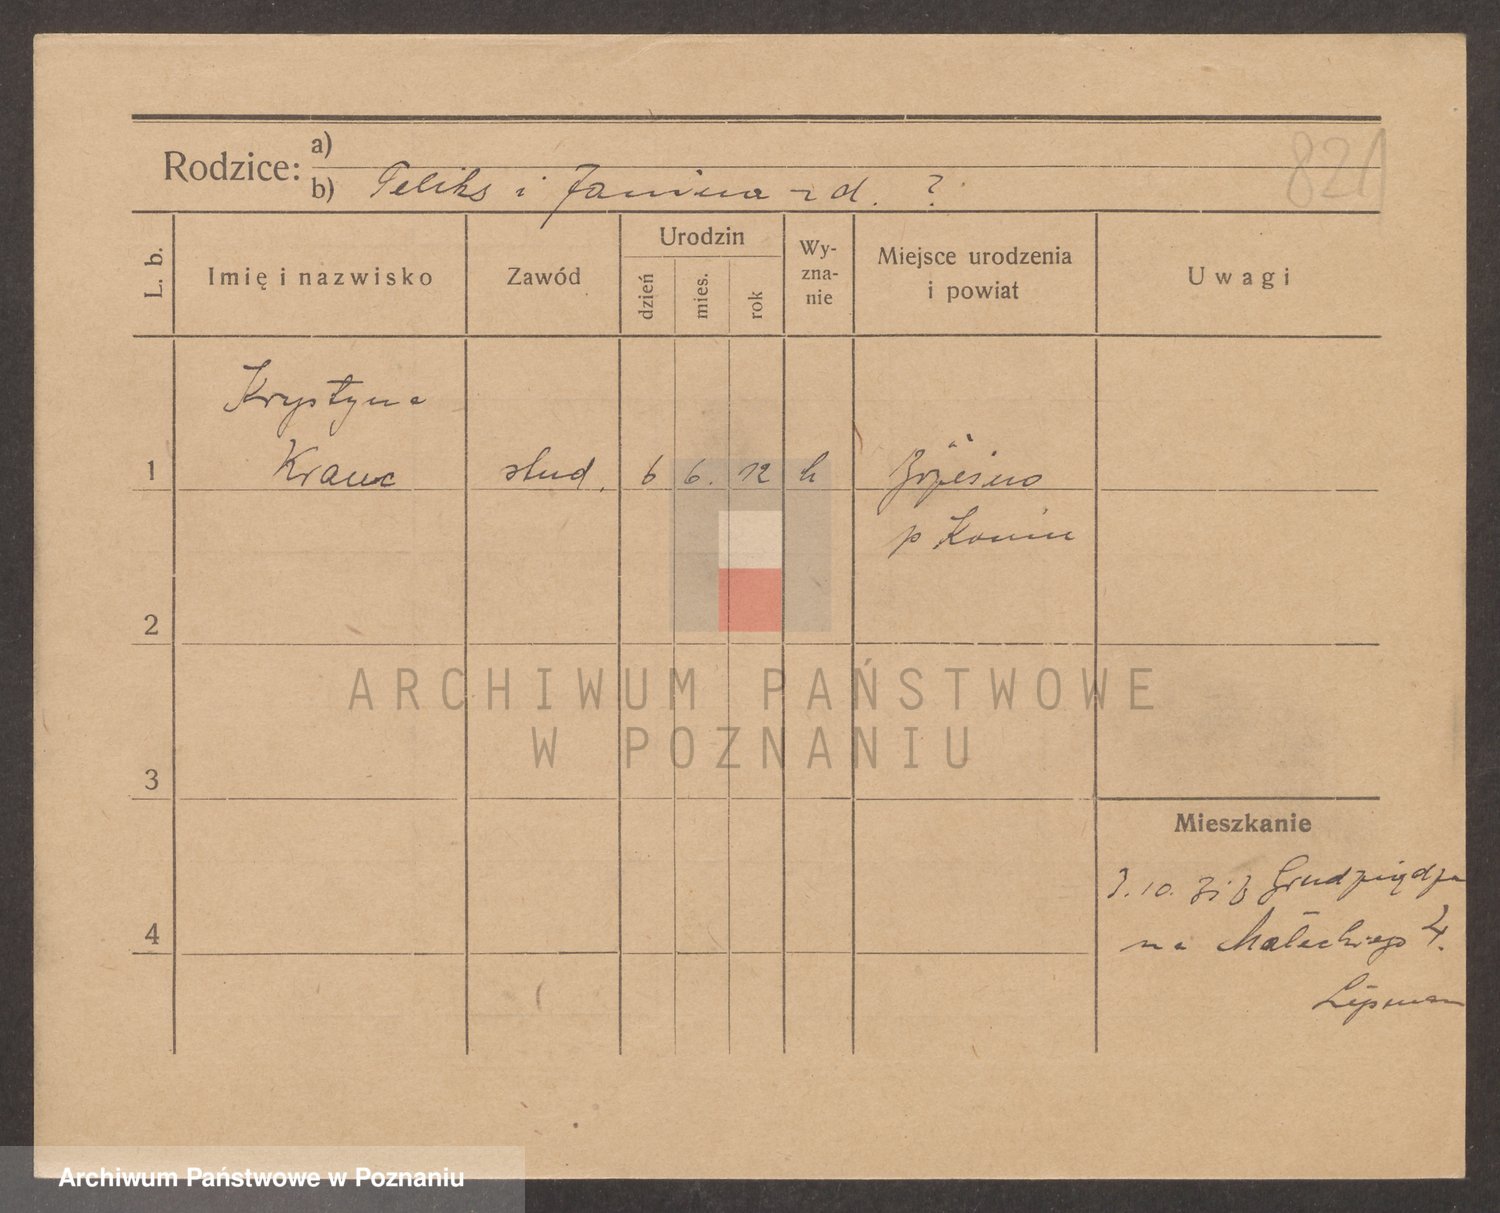 821
Rodzice:
a)
b) Feliks i Janina z d. ?
L. b.
Imię i nazwisko
Zawód
Urodzin
dzień
mies.
rok
Wy-
zna-
nie
Miejsce urodzenia
i powiat
Uwagi
Krystyna
1 Krauc stud. 6 6. 12 k
p Konin
2
3
4
Mieszkanie
3.10. z Grudziądza
na Małeckiego 4.
Lipman
ARCHIWUM PAŃSTWOWE
W POZNANIU
Archiwum Państwowe w Poznaniu